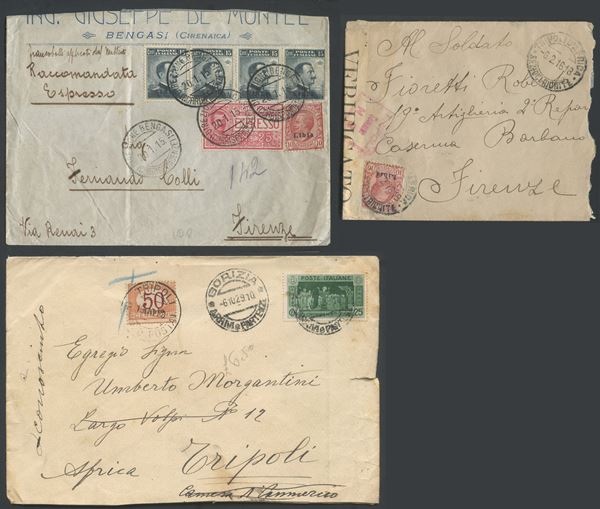 ING. GIUSEPPE DE MONTEL
BENGASI (CIRENAICA)
Raccomandata
Espresso
POSTE ITALIANE 15
ESPRESSO
LIBIA
Sig.
Fernando Colli
Via Renai 3
Firenze
142
Al Soldato
Fioretti
19° Artiglieria 2° Repar
Caserma Barbano
Firenze
VERIFICATO
TRIPOLI
50
GORIZIA
-6.10.29.10
POSTE ITALIANE
25
Sconosciuto
Egregio Signor
Umberto Morgantini
Largo Volpi N° 12
Tripoli
Africa
Camera di Commercio